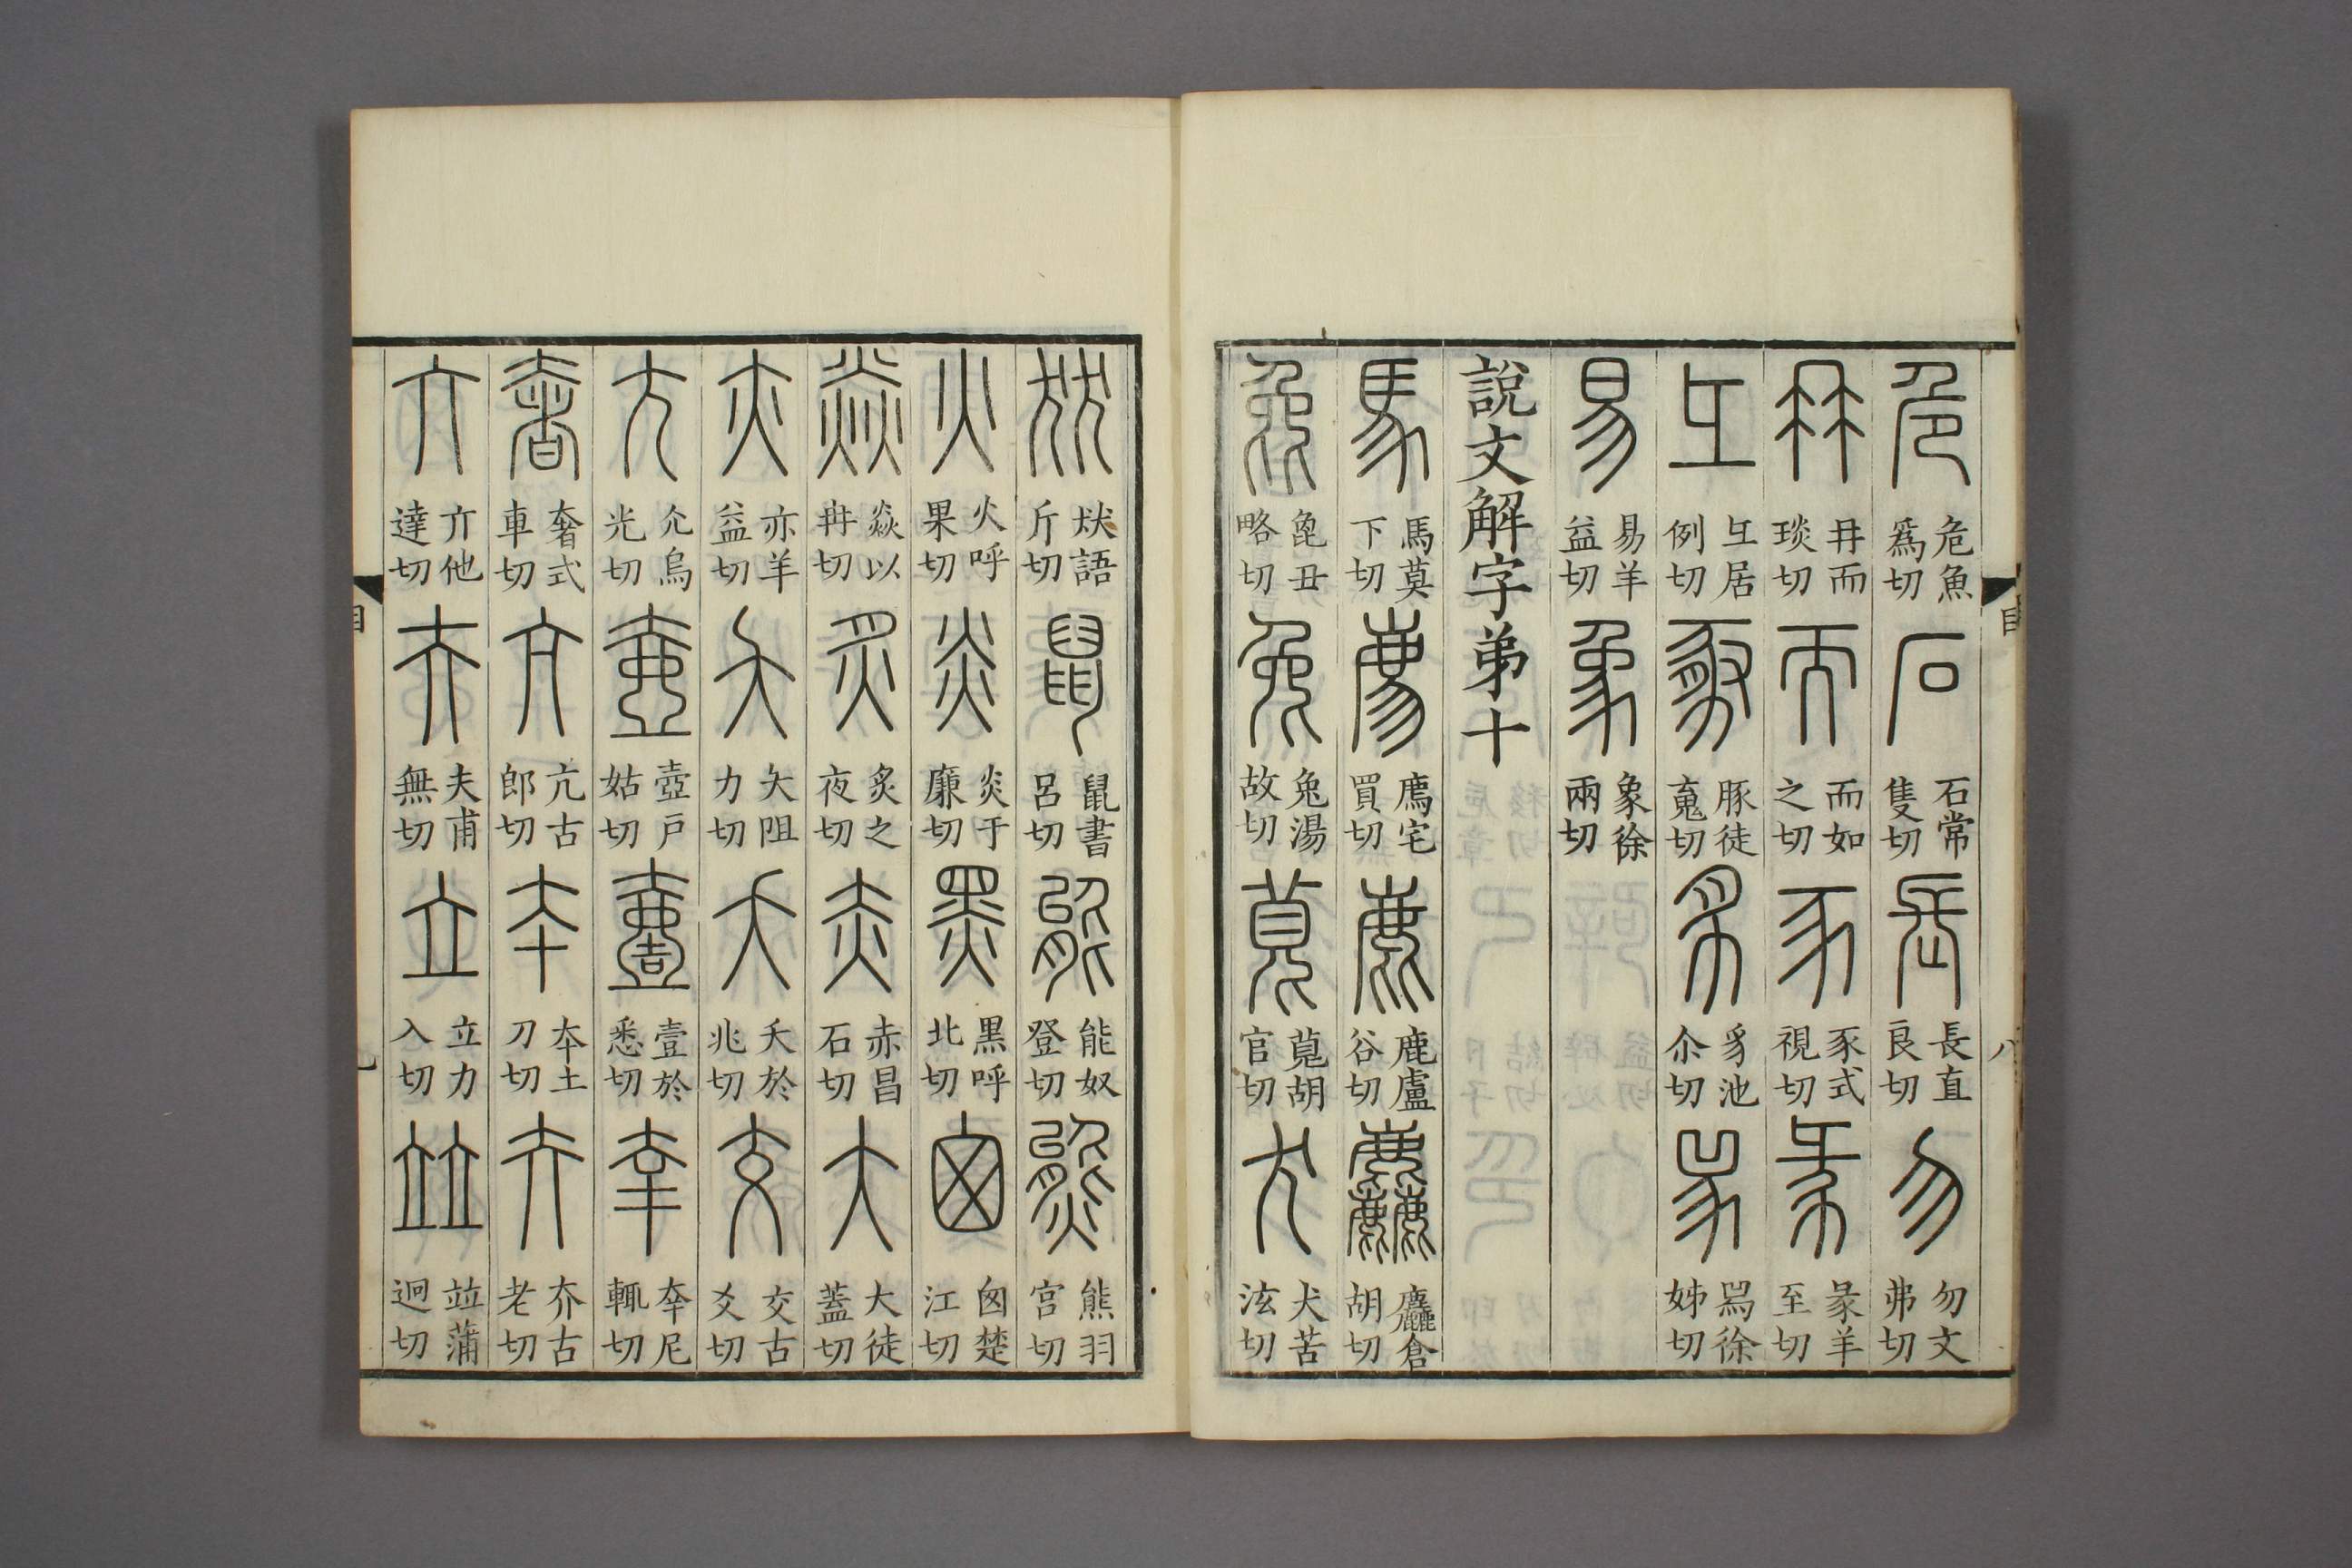 目 八
危 危魚爲切 石 石常隻切 長 長直良切 勿 勿文弗切
冄 冄而琰切 而 而如之切 豕 豕式視切 㣇 㣇羊至切
彑 彑居例切 豚 豚徒䰟切 豸 豸池尒切 𤉡 𤉡徐姊切
易 易羊益切 象 象徐兩切
說文解字弟十
馬 馬莫下切 廌 廌宅買切 鹿 鹿盧谷切 麤 麤倉胡切
㲋 㲋丑略切 兔 兔湯故切 萈 萈胡官切 犬 犬苦泫切
㹜 㹜語斤切 鼠 鼠書呂切 能 能奴登切 熊 熊羽宫切
火 火呼果切 炎 炎于廉切 黑 黑呼北切 囪 囪楚江切
焱 焱以冄切 炙 炙之夜切 赤 赤昌石切 大 大徒蓋切
亦 亦羊益切 夨 夨阻力切 夭 夭於兆切 交 交古爻切
尣 尣烏光切 壺 壺戶姑切 壹 壹於悉切 㚔 㚔尼輒切
奢 奢式車切 亢 亢古郎切 夲 夲土刀切 夰 夰古老切
亣 亣他達切 夫 夫甫無切 立 立力入切 竝 竝蒲迥切
目